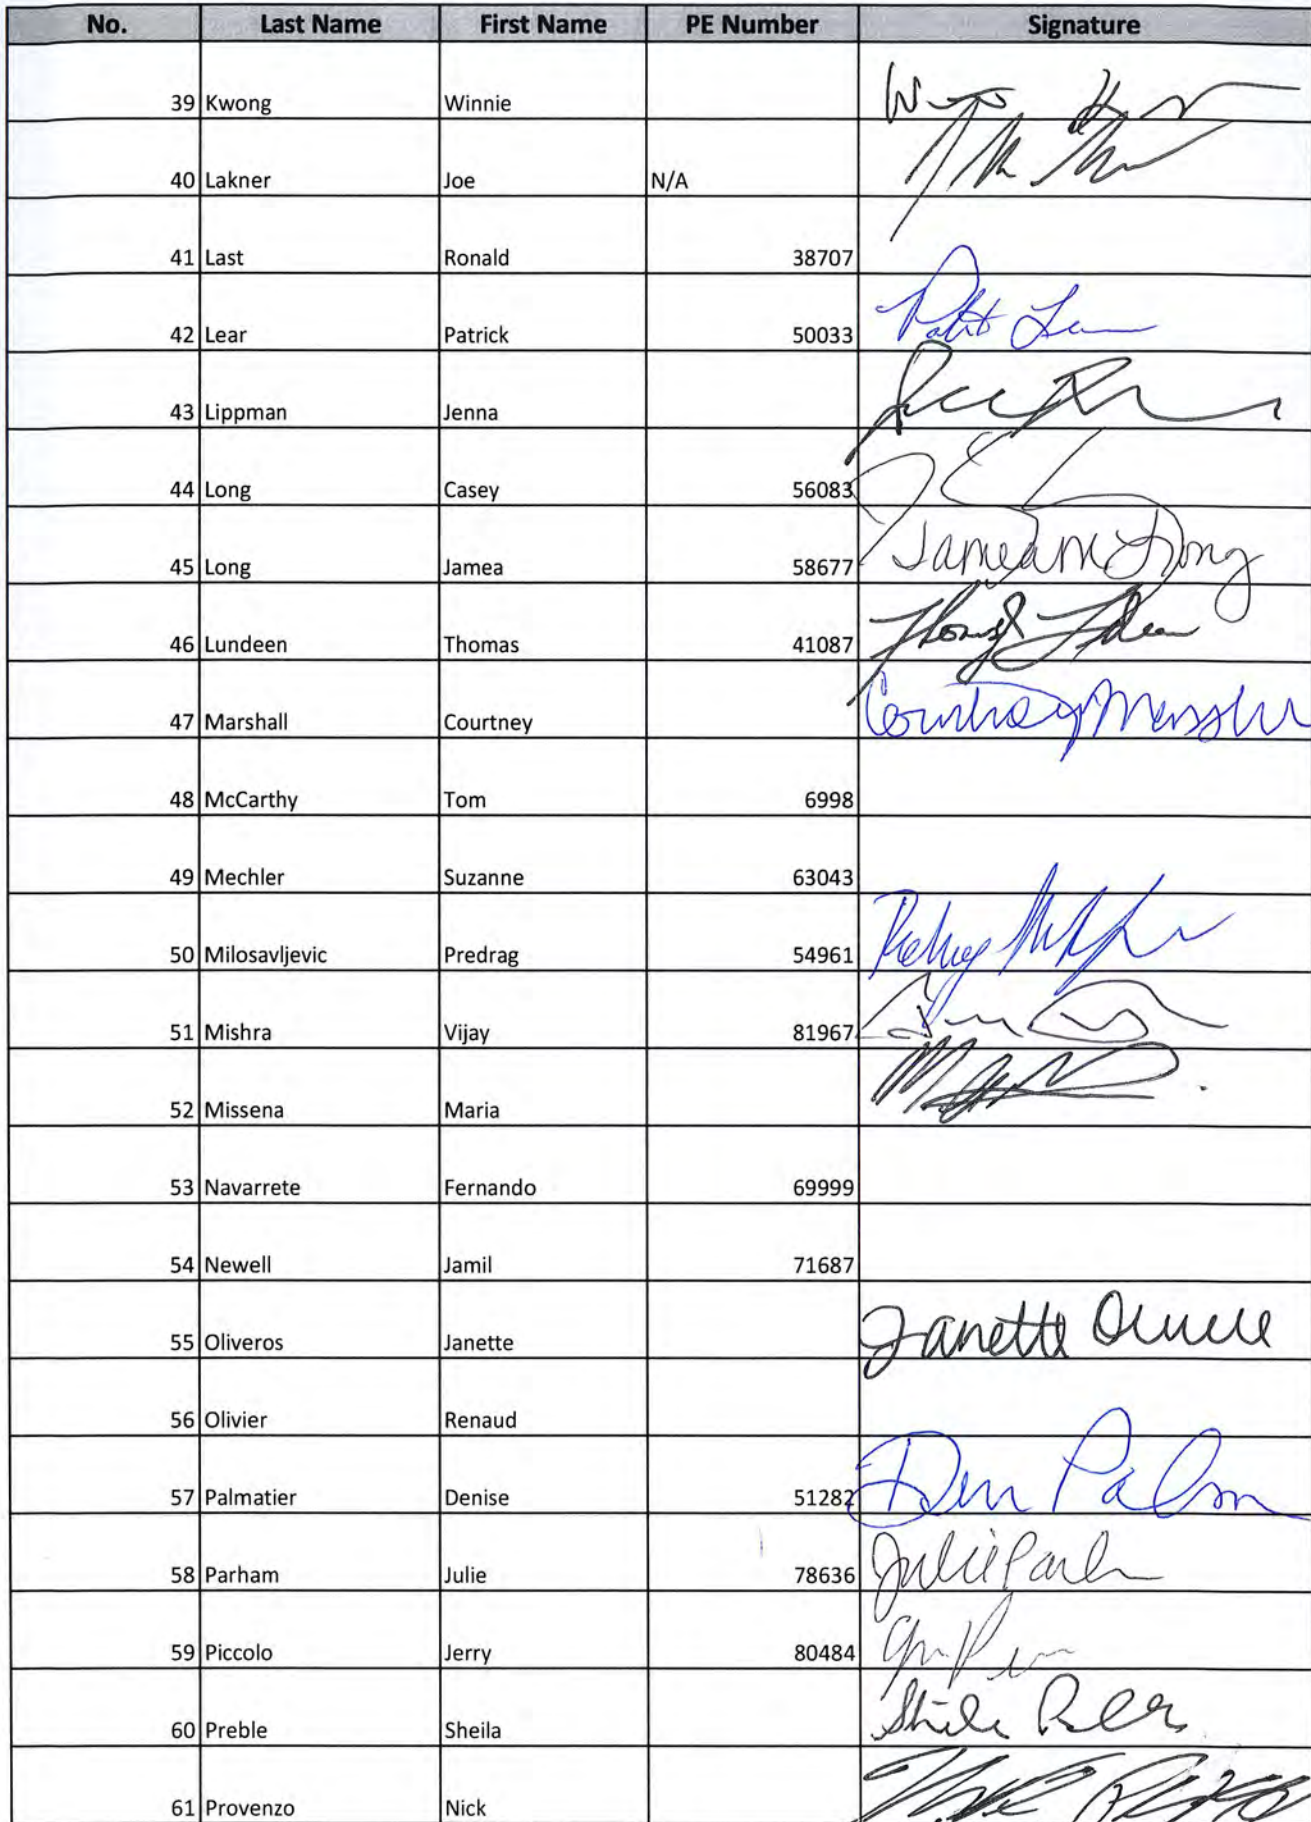 No. Last Name First Name PE Number Signature
39 Kwong Winnie
40 Lakner Joe N/A
41 Last Ronald 38707
42 Lear Patrick 50033
43 Lippman Jenna
44 Long Casey 56083
45 Long Jamea 58677 Jamea M Long
46 Lundeen Thomas 41087
47 Marshall Courtney
48 McCarthy Tom 6998
49 Mechler Suzanne 63043
50 Milosavljevic Predrag 54961
51 Mishra Vijay 81967
52 Missena Maria
53 Navarrete Fernando 69999
54 Newell Jamil 71687
55 Oliveros Janette Janette
56 Olivier Renaud
57 Palmatier Denise 51282
58 Parham Julie 78636 Julie
59 Piccolo Jerry 80484
60 Preble Sheila
61 Provenzo Nick